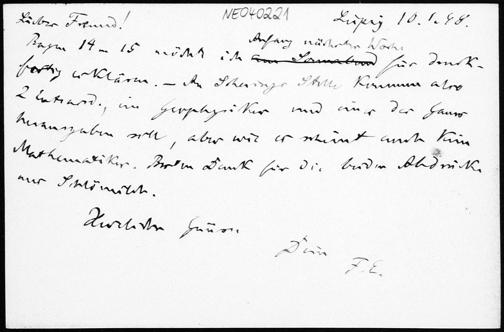 NE040221
Leipzig 10.1.98.
Lieber Freund!
Bogen 14 u 15 möcht ich Anfang nächster Woche für druck-
fertig erklären. – An Scherings Stelle kommen also
2 Extraord., ein Geophysiker und einer der Gauss
herausgeben soll, aber wie es scheint auch kein
Mathematiker. Besten Dank für die beiden Abdrücke
aus Schlömilch.
Herzliche Grüsse
Dein
F. E.